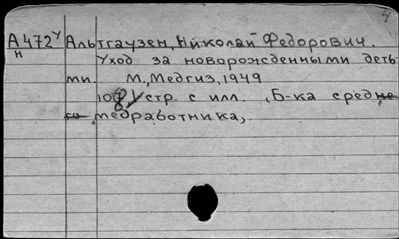 4
А472У Альтгаузен, Николай Федорович.
Н Уход за новорожденными деть
ми. М., Медгиз, 1949
стр. с илл. , Б-ка средне
го медработника,